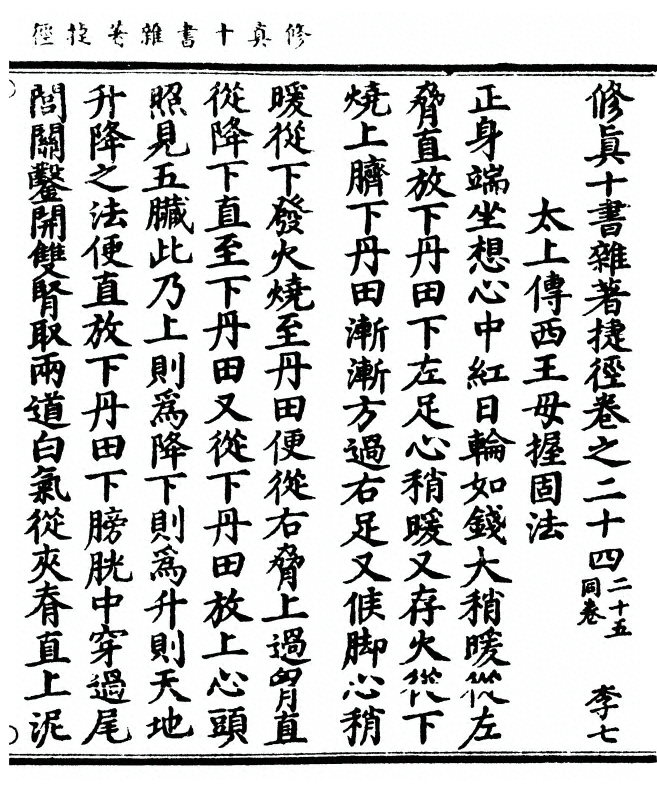 修真十書雜著捷徑
修眞十書雜著捷徑卷之二十四 二十五同卷 李七
太上傳西王母握固法
正身端坐想心中紅日輪如錢大稍暖從左
脅直放下丹田下左足心稍暖又存火從下
燒上臍下丹田漸漸方過右足又候脚心稍
暖從下發火燒至丹田便從右脅上過胷直
從降下直至下丹田又從下丹田放上心頭
照見五臟此乃上則爲降下則爲升則天地
升降之法便直放下丹田下膀胱中穿過尾
閭關鑿開雙腎取兩道白氣從夾脊直上泥